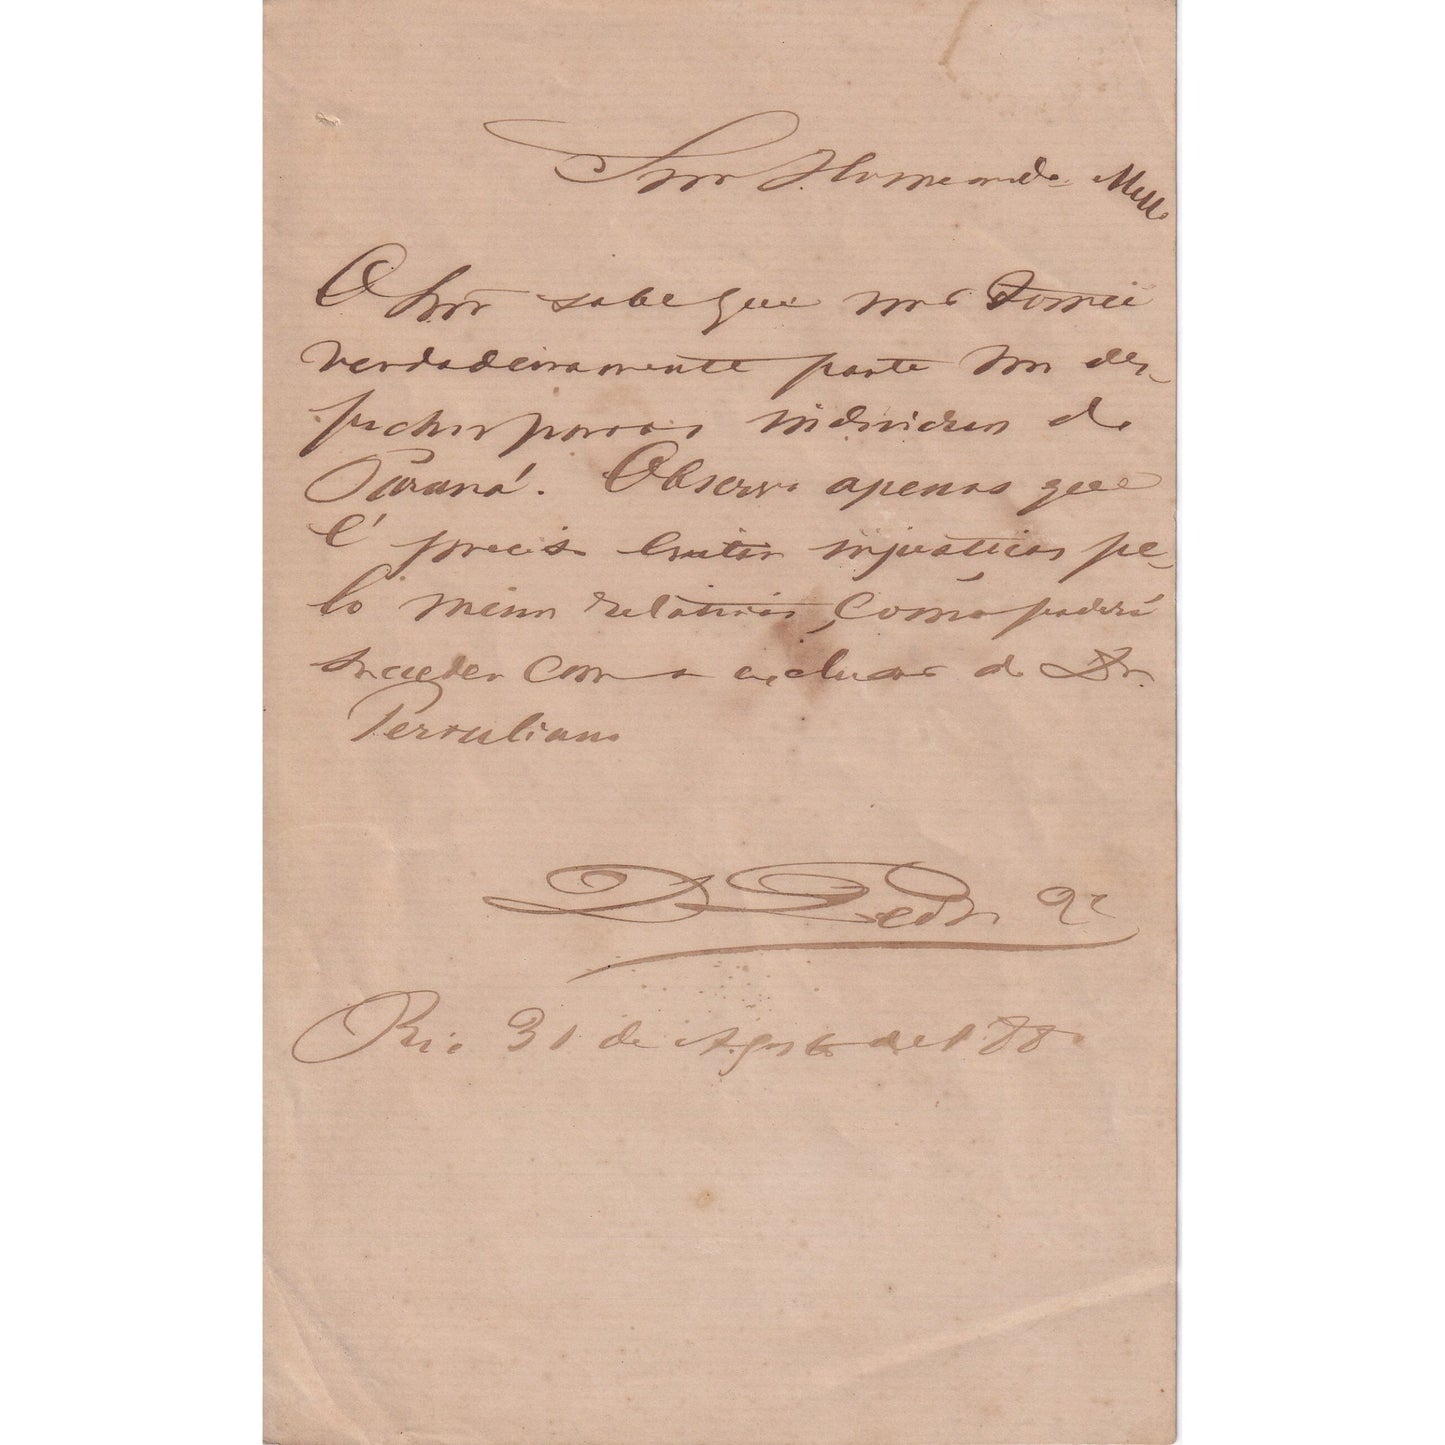 Snr. Homem de Mello
O Snr sabe que não tomei
verdadeiramente parte nos des-
pachos para os individuos do
Paraná. Observo apenas que
é preciso evitar injustiças pe-
lo menos relativas, como poderá
suceder com a exclusão do Dr.
Tertuliano
D. Pedro 2º
Rio 31 de Agosto de 1880